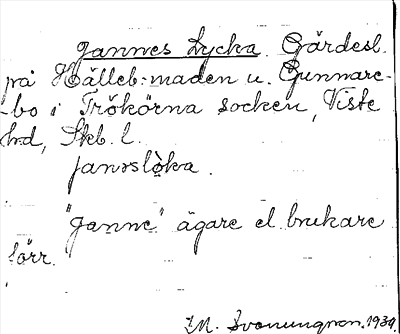 Jannes Lycka Gärdesl.
på Hälleb:maden u. Gunnare-
-bo i Trökörna socken, Viste
hd, Skb. l.
janəslə̀ka.
"Janne" ägare el. brukare
förr.
1934.